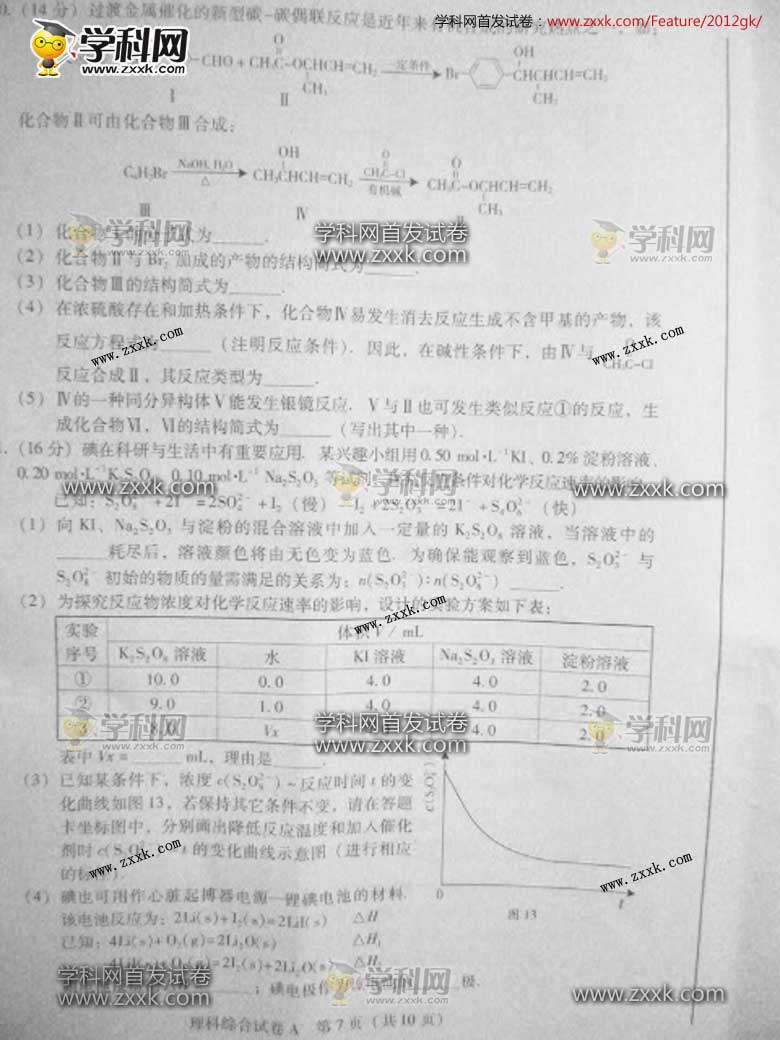 (14分) 过渡金属催化的新型碳-碳偶联反应是近年来
学科网首发试卷：www.zxxk.com/Feature/2012gk/
学科网
www.zxxk.com
O OH
CHO + CH₃C-OCHCH=CH₂ 一定条件 Br CHCHCH=CH₂
CH₃ CH₃
Ⅰ Ⅱ
化合物Ⅱ可由化合物Ⅲ合成：
OH O O
C₄H₇Br NaOH, H₂O △ CH₃CHCH=CH₂ CH₃C-Cl 有机碱 CH₃C-OCHCH=CH₂
CH₃
Ⅲ Ⅳ Ⅱ
(1) 化合物 为______.
学科网 学科网首发试卷 学科网
www.zxxk.com www.zxxk.com www.zxxk.com
(2) 化合物Ⅱ与Br₂加成的产物的结构简式为______.
(3) 化合物Ⅲ的结构简式为______.
(4) 在浓硫酸存在和加热条件下，化合物Ⅳ易发生消去反应生成不含甲基的产物，该
反应方程式为______（注明反应条件）. 因此，在碱性条件下，由Ⅳ与 CH₃C-Cl
www.zxxk.com www.zxxk.com
反应合成Ⅱ，其反应类型为______.
(5) Ⅳ的一种同分异构体Ⅴ能发生银镜反应. Ⅴ与Ⅱ也可发生类似反应①的反应，生
成化合物Ⅵ，Ⅵ的结构简式为______（写出其中一种）.
(16分) 碘在科研与生活中有重要应用. 某兴趣小组用0.50 mol·L⁻¹KI、0.2%淀粉溶液、
0.20 mol·L⁻¹K₂S₂O₈、0.10 mol·L⁻¹ Na₂S₂O₃ 等 条件对化学反应速率的影响.
学科网首发试卷 学科网 学科网首发试卷
www.zxxk.com www.zxxk.com www.zxxk.com
已知：S₂O₈²⁻+2I⁻=2SO₄²⁻+I₂（慢） I₂+2S₂O₃²⁻=2I⁻+S₄O₆²⁻（快）
(1) 向 KI、Na₂S₂O₃ 与淀粉的混合溶液中加入一定量的 K₂S₂O₈ 溶液，当溶液中的
______耗尽后，溶液颜色将由无色变为蓝色. 为确保能观察到蓝色，S₂O₃²⁻ 与
S₂O₈²⁻ 初始的物质的量需满足的关系为：n(S₂O₃²⁻)∶n(S₂O₈²⁻)______.
(2) 为探究反应物浓度对化学反应速率的影响，设计的实验方案如下表：
www.zxxk.com
实验序号 体积V/mL
K₂S₂O₈溶液 水 KI溶液 Na₂S₂O₃溶液 淀粉溶液
① 10.0 0.0 4.0 4.0 2.0
② 9.0 1.0 4.0 4.0 2.0
Vx 4.0 2.0
学科网 学科网首发试卷 学科网
www.zxxk.com www.zxxk.com www.zxxk.com
表中Vx=______mL，理由是______.
(3) 已知某条件下，浓度c(S₂O₈²⁻)~反应时间t的变
化曲线如图13，若保持其它条件不变，请在答题
卡坐标图中，分别画出降低反应温度和加入催化
剂时c(S₂O₈²⁻) t的变化曲线示意图（进行相应
的标
www.zxxk.com www.zxxk.com
0 t
图13
(4) 碘也可用作心脏起搏器电源—锂碘电池的材料.
该电池反应为：2Li(s)+I₂(s)=2LiI(s) △H
已知：4Li(s)+O₂(g)=2Li₂O(s) △H₁
4LiI(s)+O₂(g)=2I₂(s)+2Li₂O(s) △H₂
______；碘电极作 极.
学科网首发试卷 学科网 学科网首发试卷
www.zxxk.com www.zxxk.com www.zxxk.com
理科综合试卷A 第7页（共10页）